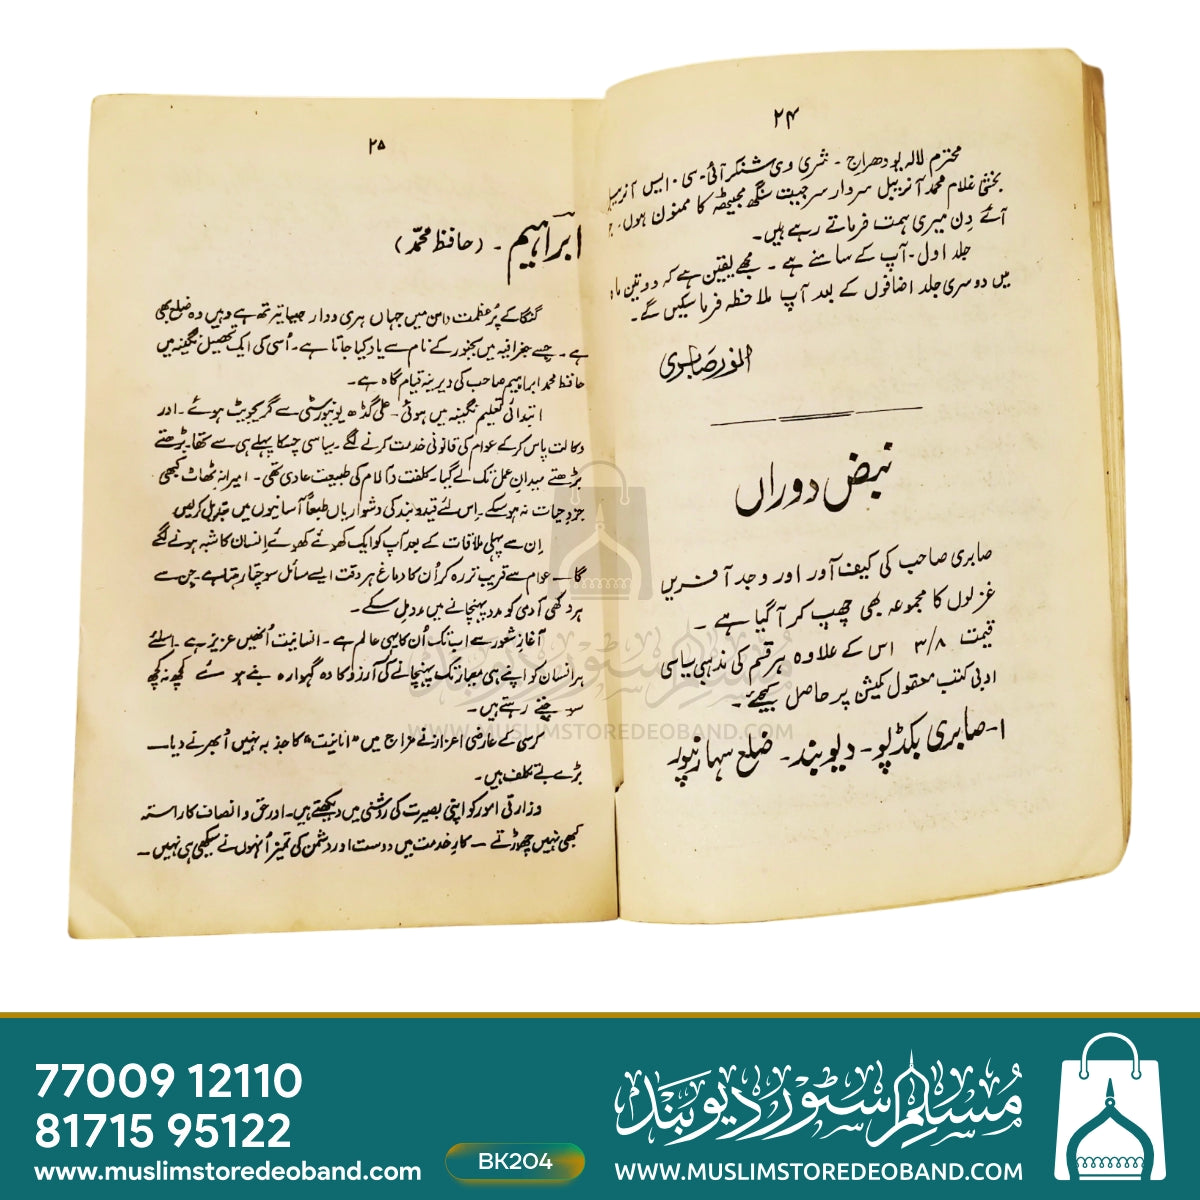 ۲۴
محترم لالہ بودھراج - شری وی شنکر آئی - سی - ایس آنریبل
بخشی غلام محمد آنریبل سردار سرجیت سنگھ مجیٹھہ کا ممنون ہوں
آئے دن میری ہمت فرماتے رہے ہیں۔
جلد اول - آپ کے سامنے ہے - مجھے یقین ہے کہ دو تین ماہ
میں دوسری جلد اضافوں کے بعد آپ ملاحظہ فرما سکیں گے۔
انور صابری
نبض دوراں
صابری صاحب کی کیف آور اور وجد آفریں
غزلوں کا مجموعہ بھی چھپ کر آگیا ہے۔
قیمت ۳/۸ اس کے علاوہ ہر قسم کی مذہبی سیاسی
ادبی کتب معقول کمیشن پر حاصل کیجئے۔
۱- صابری بکڈپو - دیوبند - ضلع سہارنپور
۲۵
ابراہیم - (حافظ محمدؐ)
گنگا کے پُر عظمت دامن میں جہاں ہری دوار جیسا تیرتھ ہے وہیں وہ ضلع بھی
ہے - جسے جغرافیہ میں بجنور کے نام سے یاد کیا جاتا ہے - اُسی کی ایک تحصیل نگینہ میں
حافظ محمد ابراہیم صاحب کی دیرینہ قیام گاہ ہے -
ابتدائی تعلیم نگینہ میں ہوئی - علی گڈھ یونیورسٹی سے گریجویٹ ہوئے - اور
وکالت پاس کرکے عوام کی قانونی خدمت کرنے لگے - سیاسی چسکا پہلے ہی سے تھا - بڑھتے
بڑھتے میدانِ عمل تک لے گیا - کلفت و آلام کی طبیعت عادی تھی - امیرانہ ٹھاٹ کبھی
جزوِ حیات نہ ہوسکے - اِس لئے قید و بند کی دشواریاں طبعاً آسانیوں میں تبدیل کرلیں
اِن سے پہلی ملاقات کے بعد آپ کو ایک کھوئے کھوئے اِنسان کا شبہ ہونے لگے
گا — عوام سے قریب تر رہ کر اُن کا دماغ ہر وقت ایسے مسائل سوچتا رہتا ہے - جن سے
ہر دکھی آدمی کو مدد پہنچانے میں مدد مل سکے -
آغازِ شعور سے اب تک اُن کا یہی عالم ہے - انسانیت اُنھیں عزیز ہے - اسلئے
ہر انسان کو اپنے ہی معیار تک پہنچانے کی آرزو کا وہ گہوارہ بنے ہوئے کچھ نہ کچھ
سوچتے رہتے ہیں -
کرسی کے عارضی اعزاز نے مزاج میں "انانیت" کا جذبہ نہیں اُبھرنے دیا —
بڑے بے تکلف ہیں -
وزارتی امور کو اپنی بصیرت کی روشنی میں دیکھتے ہیں - اور حق و انصاف کا راستہ
کبھی نہیں چھوڑتے — کارِ خدمت میں دوست اور دشمن کی تمیز اُنہوں نے سیکھی ہی نہیں -
مسلم سٹور دیوبند
WWW.MUSLIMSTOREDEOBAND.COM
77009 12110
81715 95122
www.muslimstoredeoband.com
BK204
مسلم سٹور دیوبند
WWW.MUSLIMSTOREDEOBAND.COM